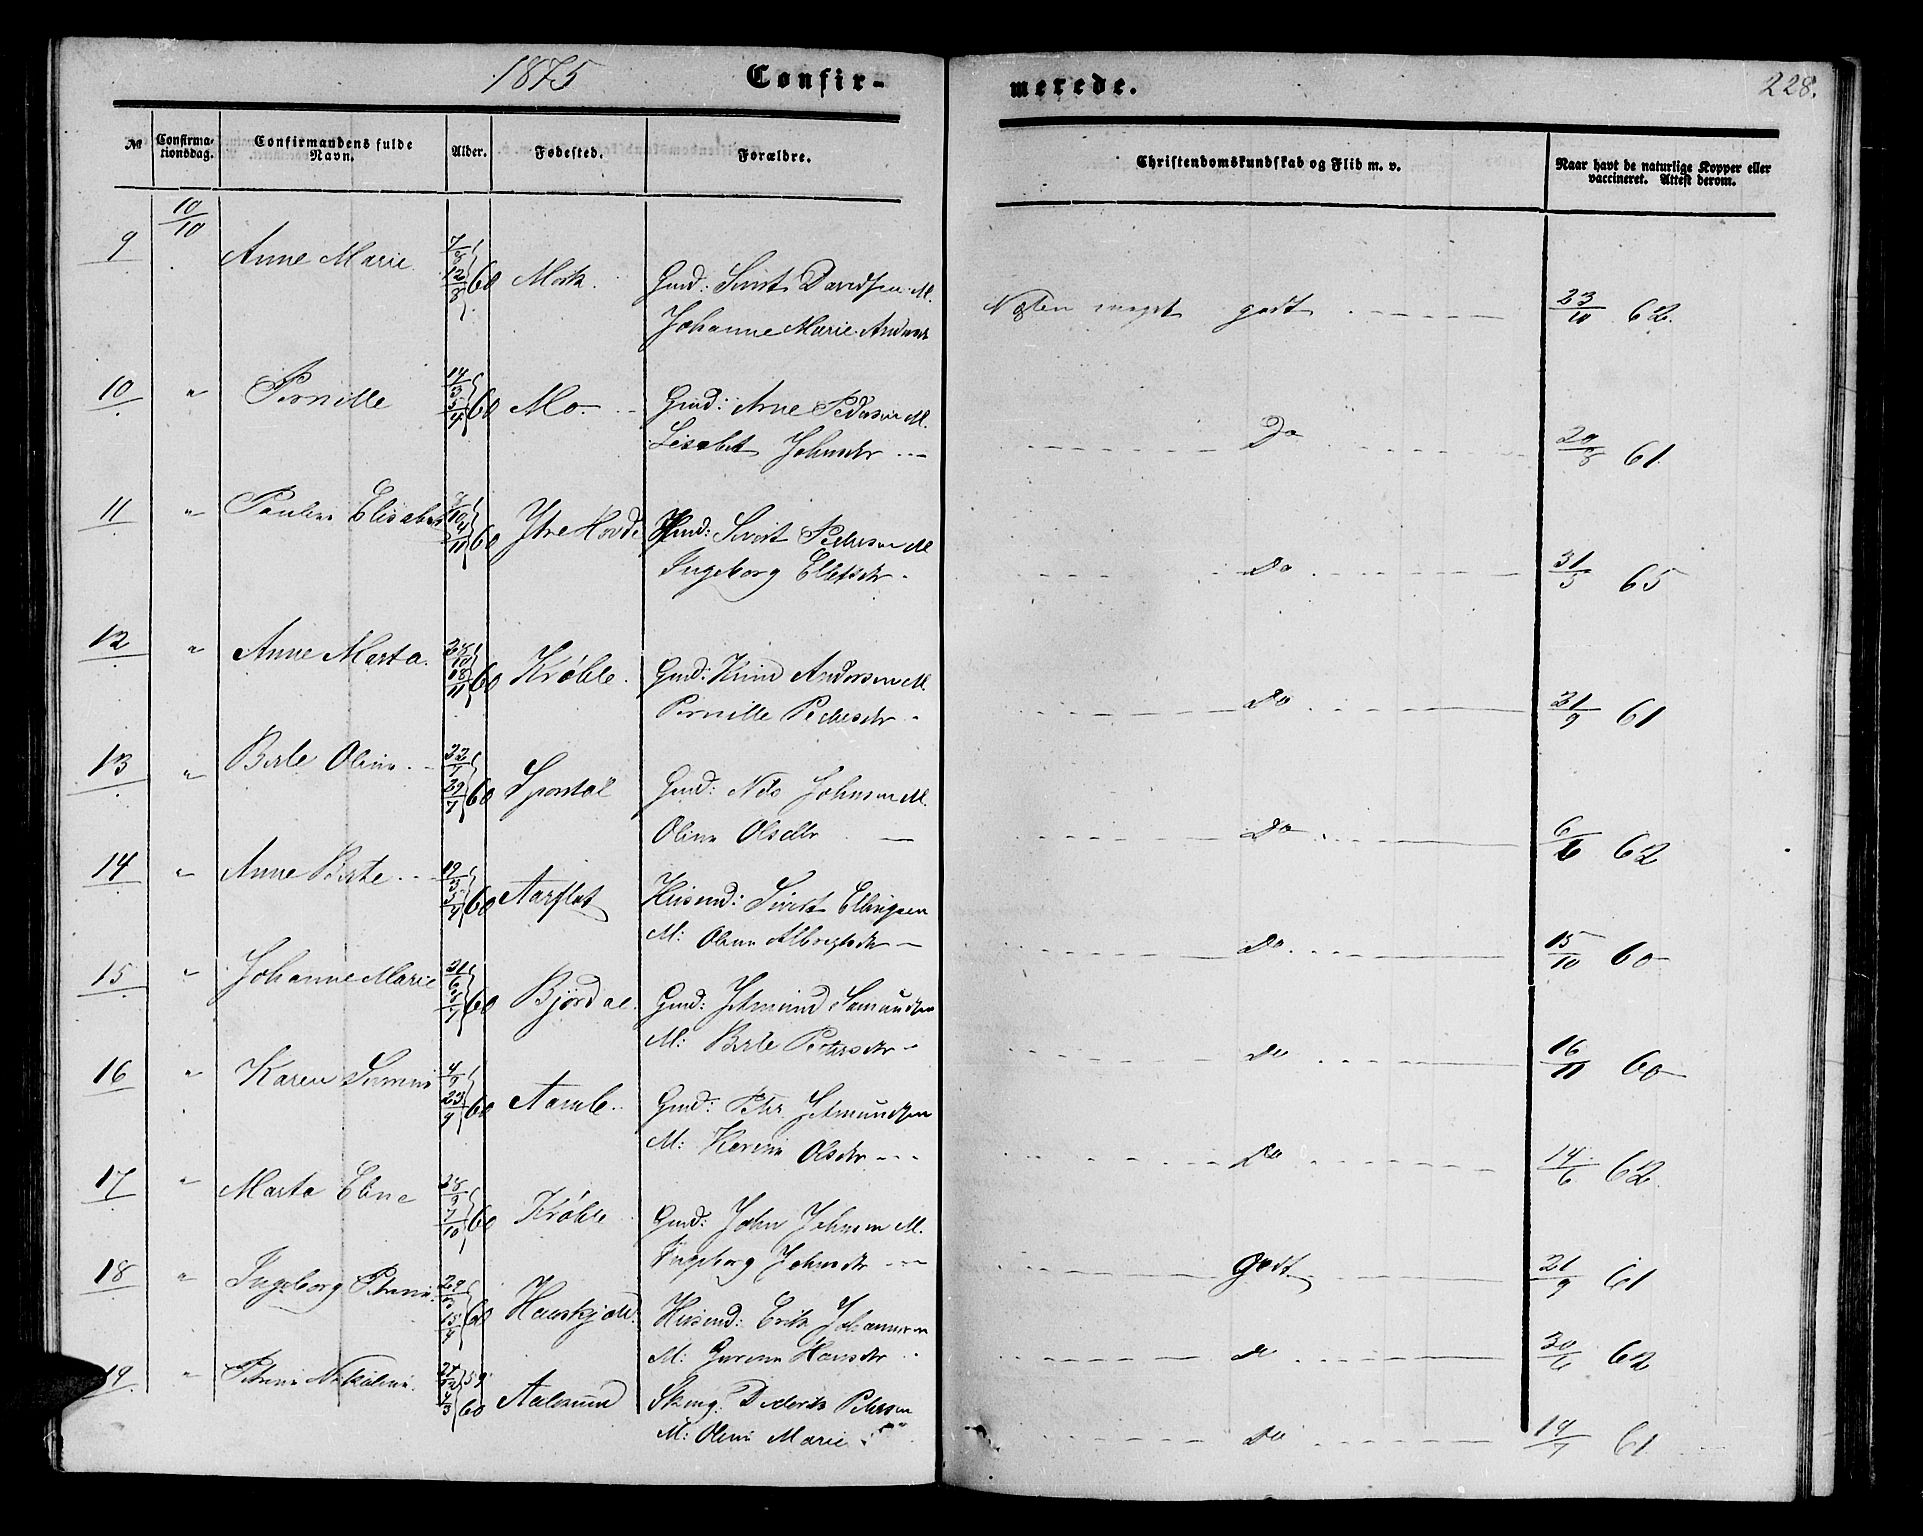 1875 Confir-
merede. 228.
№ Confirma-tionsdag. Confirmandens fulde Navn. Alder. Fødested. Forældre. Christendomskundskab og Flid m. v. Naar havt de naturlige Kopper eller vaccineret. Attest derom.
10/10
9 Anne Marie 7/8 12/8 60 Mork. Gmd: Sivert Davidsen M.
Johanne Marie Anders Næsten meget godt 23/10 62.
10 " Pernille 14/3 5/4 60 Mo Gmd: Arne Pedersen M.
Lisabet Johnsdtr Do 20/8 61.
11 " Pauline Elisabet 60 Ytre Hovde Gmd: Sivert Pedersen M
Ingeborg Ellefsdtr Do 31/5 65
12 " Anne Marta. 28/10 18/11 60 Krøble. Gmd: Knud Andersen M.
Pernille Pedersdtr Do 21/9 61
13 " Berte Oline 22/7 29/7 60 Gmd: Nils Johnsen M.
Oline Olsdtr Do 6/6 62
14 " Anne Berte 19/3 5/4 60 Aarflot Husmd: Sivert Ellingsen
M: Oline Albregtsdtr Do 15/10 60
15 " Johanne Marie 60 Bjørdal. Gmd: Jetmund Samundsen
M: Berte Petersdtr Do 16/11 60
16 " Karen 4/9 23/9 60 Gmd: Peter Jetmundsen
M: Karine Olsdtr Do 14/6 62.
17 " Marta Eline 28/9 7/10 60 Krøble Gmd: John Johnsen M.
Ingeborg Johnsdtr Godt 21/9 61
18 " Ingeborg Petrine 60 Husmd: Erik Johannesen
M: Gurine Hansdtr Do 30/6 62
19. " Petrine Nikoline. 59 60 Aalesund Peters​en
M: Oline Marie Do 19/7 61